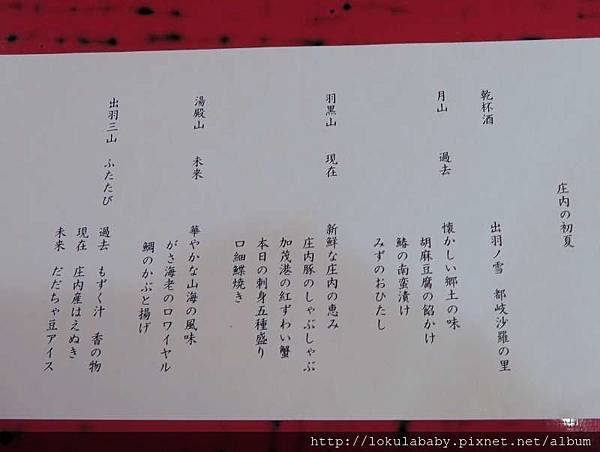 庄内の初夏
乾杯酒　出羽ノ雪　都岐沙羅の里
月山　過去　懐かしい郷土の味
胡麻豆腐の餡かけ
鰆の南蛮漬け
みずのおひたし
羽黒山　現在　新鮮な庄内の恵み
庄内豚のしゃぶしゃぶ
加茂港の紅ずわい蟹
本日の刺身五種盛り
口細鰈焼き
湯殿山　未来　華やかな山海の風味
がさ海老のロワイヤル
鯛のかぶと揚げ
出羽三山　ふたたび　過去　もずく汁　香の物
現在　庄内産はえぬき
未来　だだちゃ豆アイス
http://lokulababy.pixnet.net/album